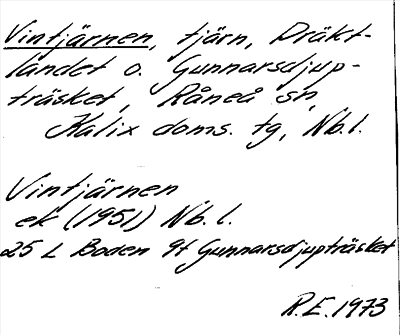 Vintjärnen, tjärn, Dräkt-
landet o. Gunnarsdjup-
träsket, Råneå sn,
Kalix doms. tg, Nb.l.
Vintjärnen
ek (1951) Nb.l.
25 L Boden 9f Gunnarsdjupträsket
R.E. 1973